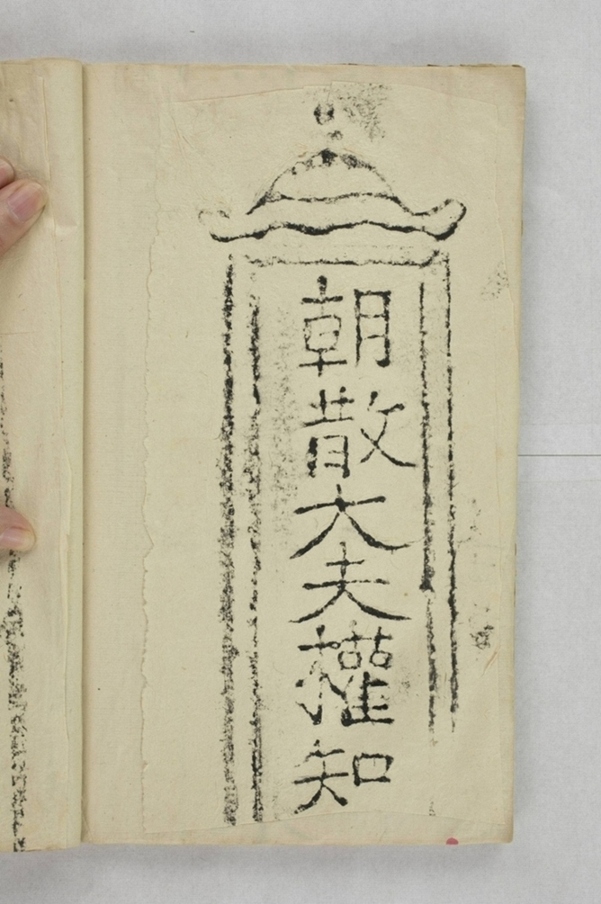 朝散大夫權知